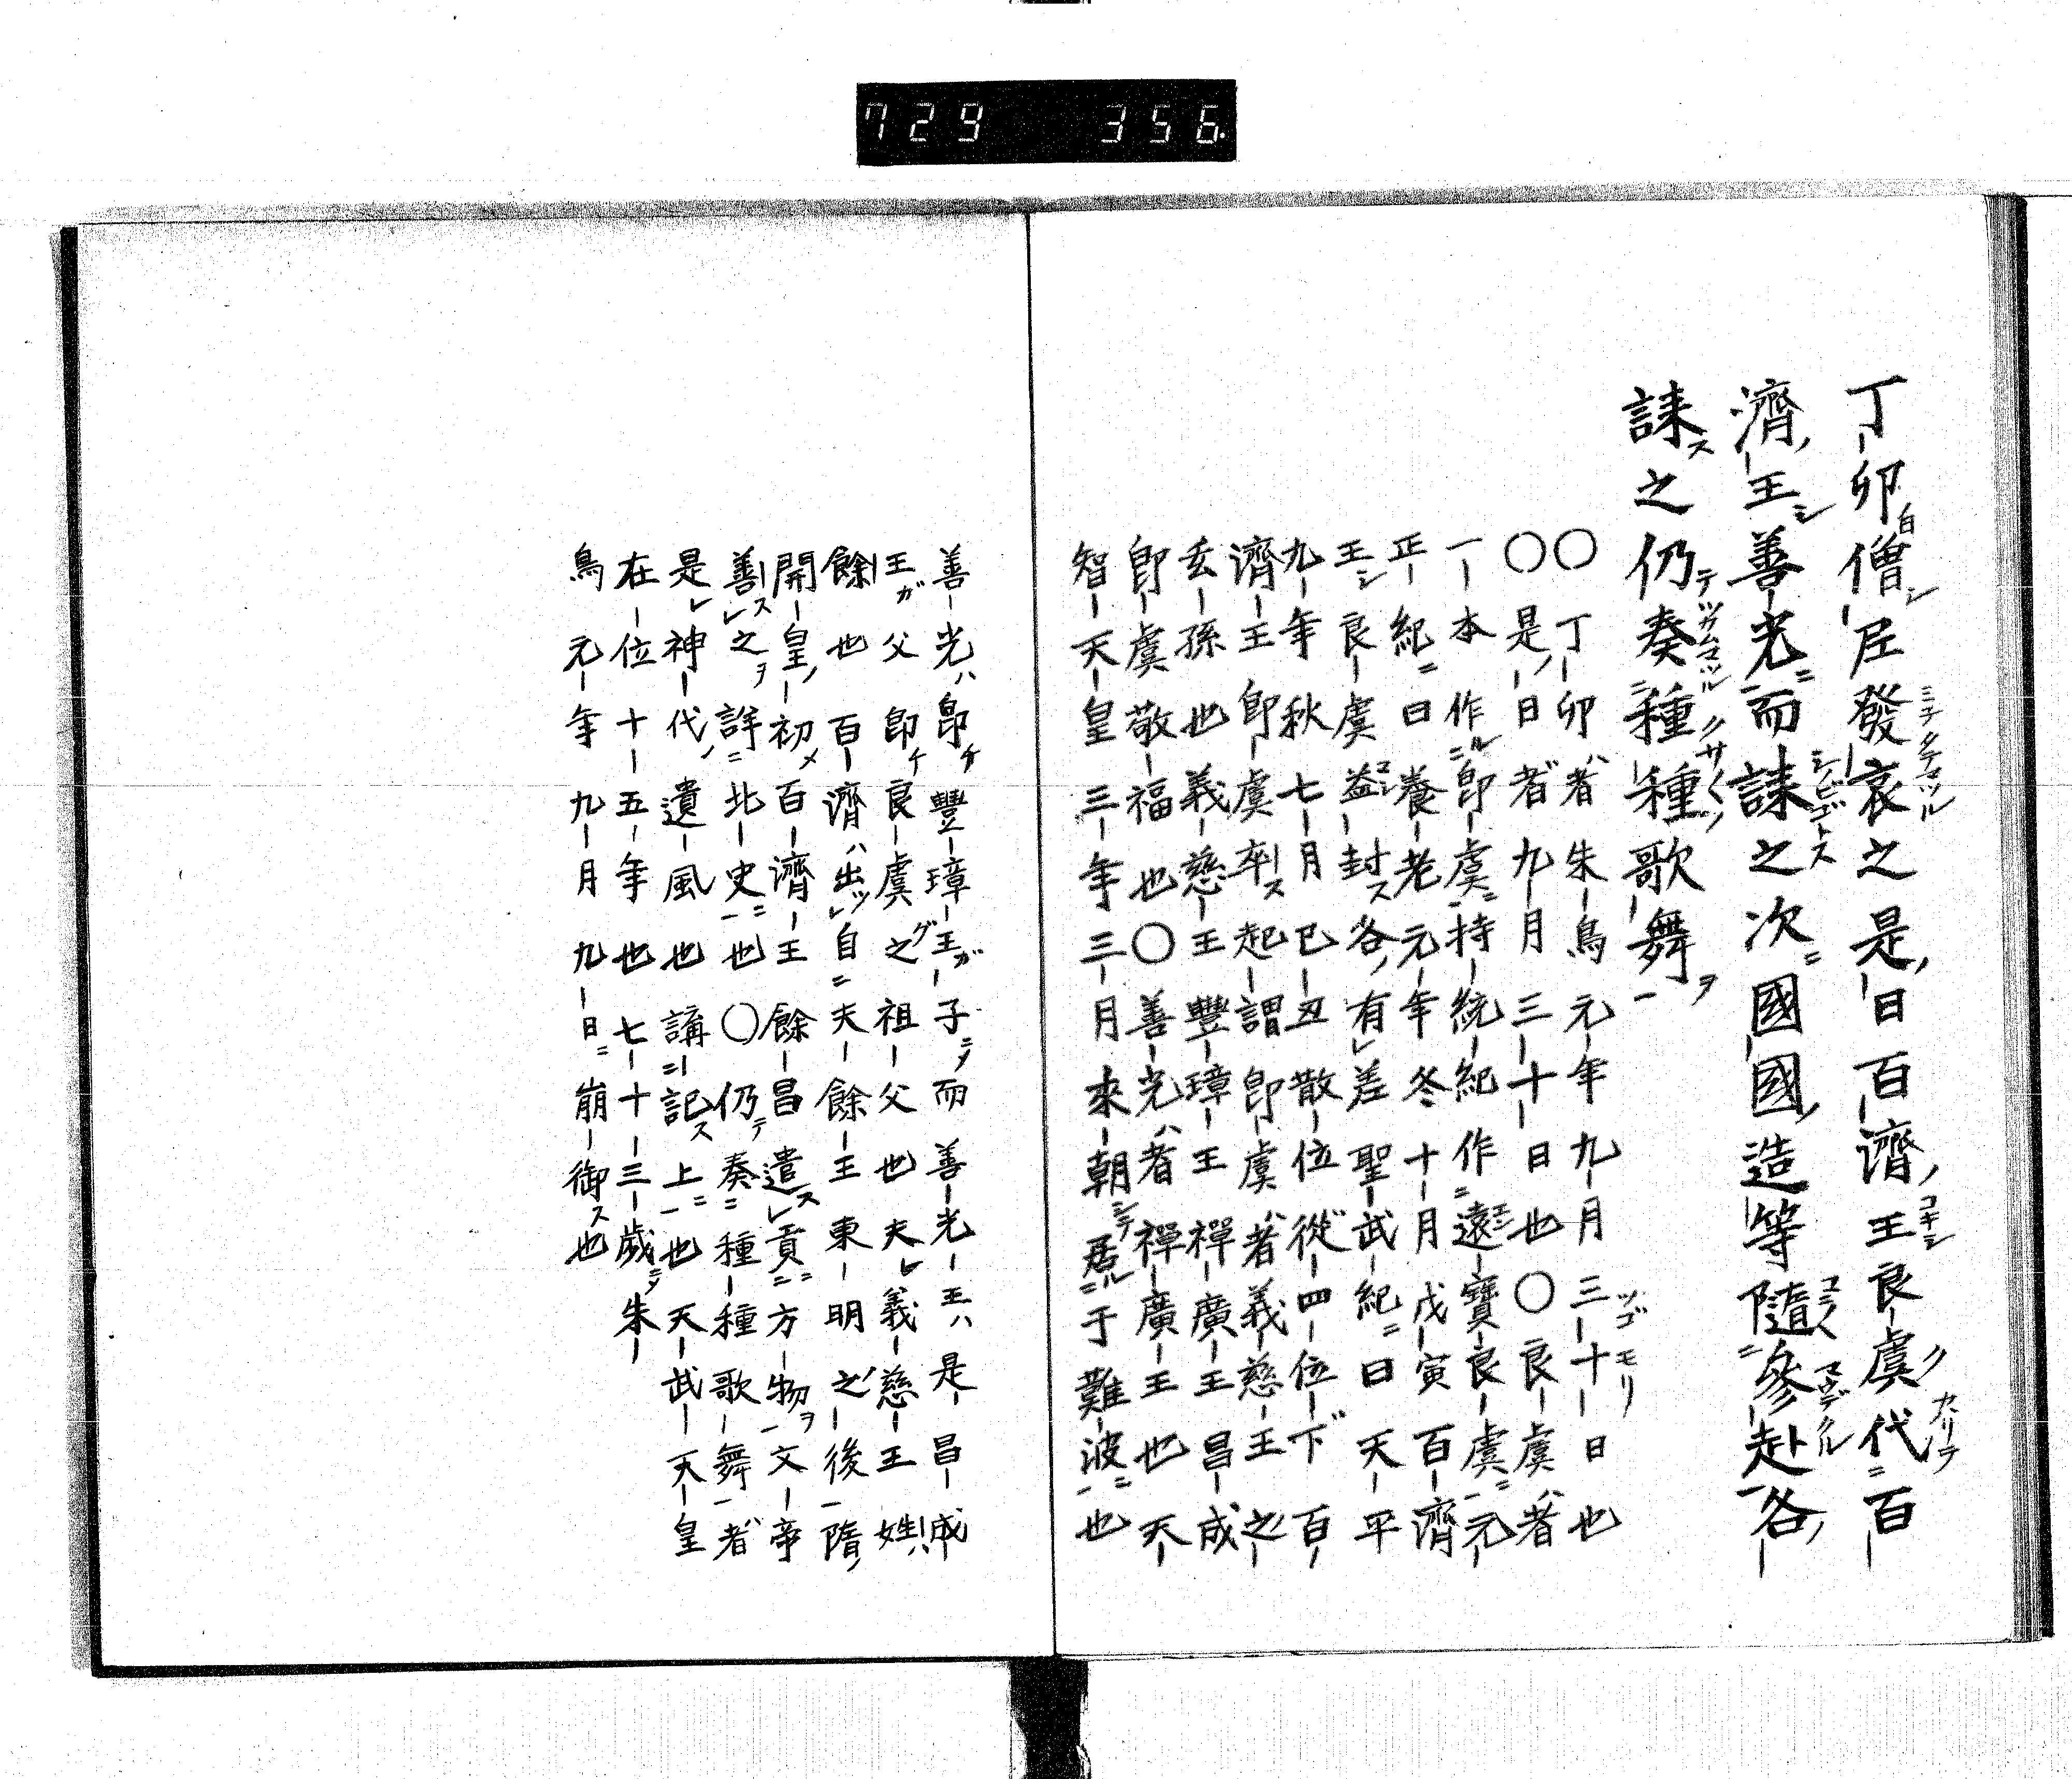 729 356
丁卯僧尼發哀之是日百濟王良虞代百
濟王善光而誄之次國國造等隨參赴各
誄之仍奏種種歌舞
〇丁卯者朱鳥元年九月三十日也
〇是日者九月三十日也〇良虞者
一本作郎虞持統紀作遠寶良虞元
正紀曰養老元年冬十月戊寅百濟
王良虞益封各有差聖武紀曰天平
九年秋七月已丑散位從四位下百
濟王郎虞卒起謂郎虞者義慈王之
玄孫也義慈王豐璋王禪廣王昌成
郎虞敬福也〇善光者禪廣王也天
智天皇三年三月來朝居于難波也
善光郎豐璋王子而善光王是昌成
王父郎良虞之祖父也夫義慈王姓
餘也百濟出自夫餘王東明之後隋
開皇初百濟王餘昌遣貢方物文帝
善之詳北史也〇仍奏種種歌舞者
是神代遺風也講記上也天武天皇
在位十五年也七十三歲朱
鳥元年九月九日崩御也